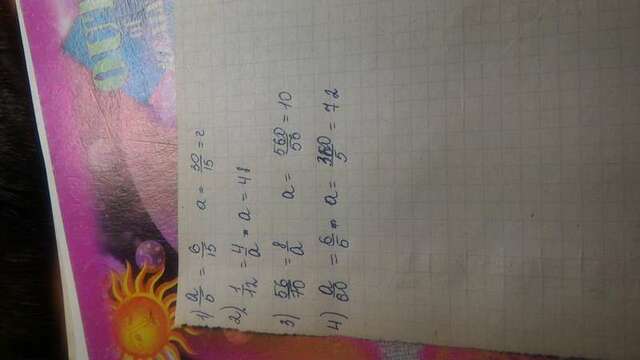 1) a/5 = 6/15 a = 30/15 = 2
2) 1/12 = 4/a a = 48
3) 56/70 = 8/a a = 560/56 = 10
4) a/60 = 6/5 a = 360/5 = 72